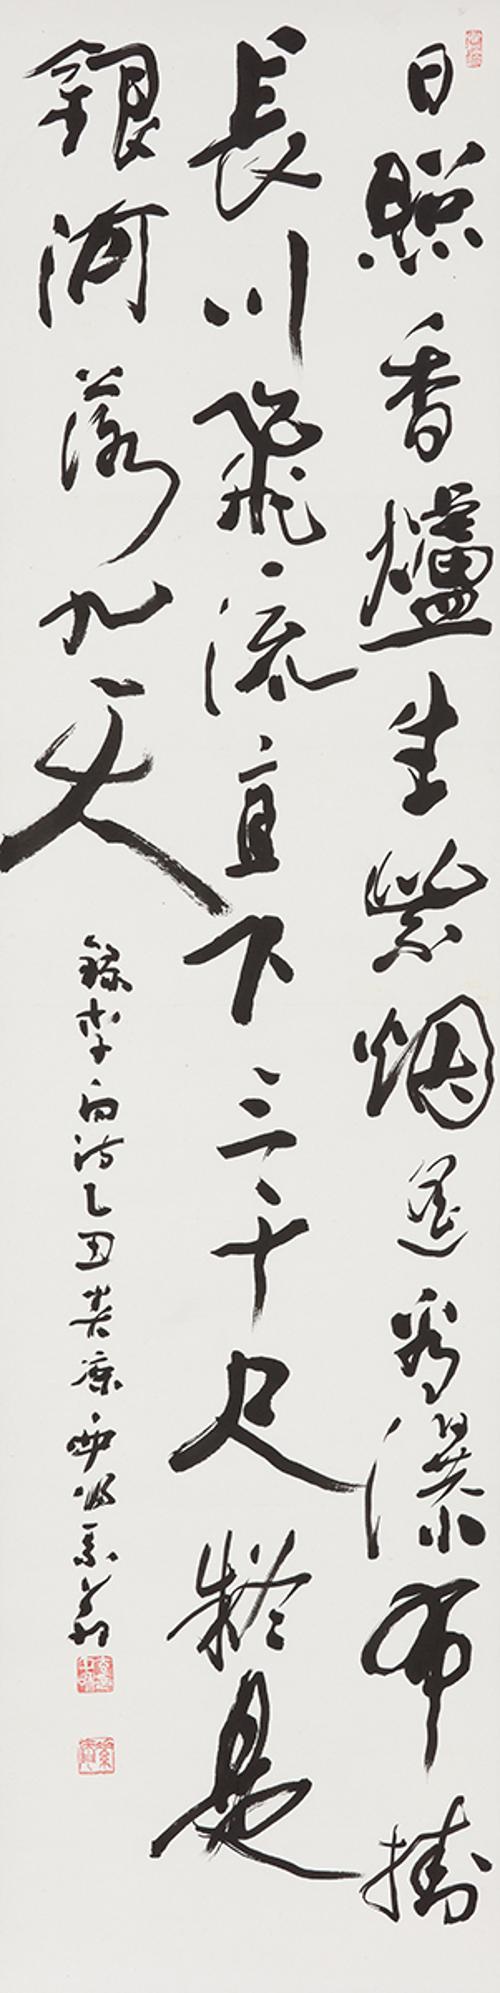 日照香爐生紫烟遥看瀑布掛
長川飛流直下三千尺疑是
銀河落九天
錄李白詩乙丑